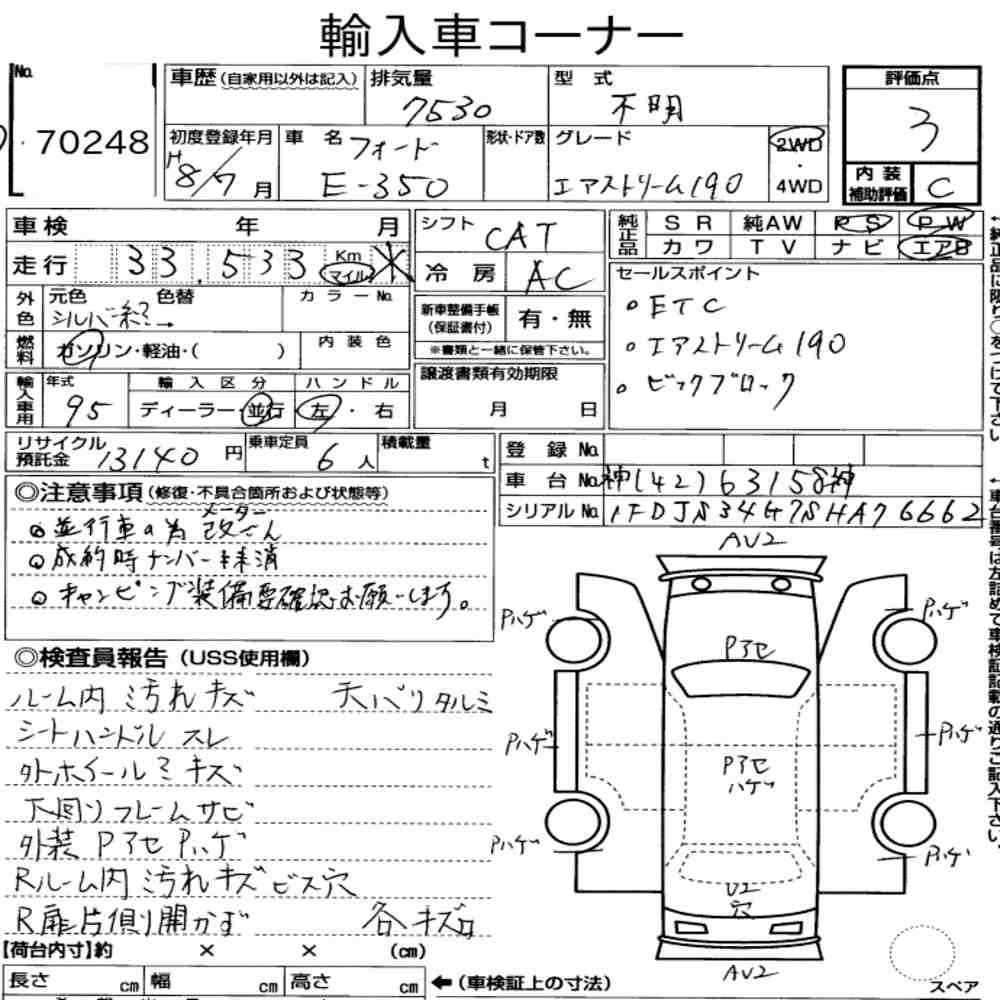 輸入車コーナー
No. 70248
車歴(自家用以外は記入) 排気量 7530 型式 不明 評価点 3
初度登録年月 H8/7月 車名 フォード E-350 形状・ドア数 グレード エアストリーム190 2WD・4WD 内装補助評価 C
車検 年 月
走行 33,533 Km マイル
シフト CAT
冷房 AC
純正品 SR 純AW PS PW
カワ TV ナビ エアB
外色 元色 シルバー 色替 カラーNo.
燃料 ガソリン・軽油・( ) 内装色
新車整備手帳(保証書付) 有・無
※書類と一緒に保管下さい。
セールスポイント
・ETC
・エアストリーム190
・ビックブロック
輸入車用 年式 95 輸入区分 ディーラー・並行 ハンドル 左・右
譲渡書類有効期限 月 日
リサイクル預託金 13140円 乗車定員 6人 積載量 t
登録No.
車台No. 神(42)63158神
シリアルNo. 1FDJS34G7SHA76662
◎注意事項(修復・不具合箇所および状態等)
メーター
◎並行車の為 改ざん
◎成約時ナンバー抹消
◎キャンピング装備要確認お願いします。
◎検査員報告(USS使用欄)
ルーム内汚れキズ 天バリタルミ
シートハンドルスレ
外ホイールミキズ
下回りフレームサビ
外装PアセPハゲ
Rルーム内汚れキズビス穴
R扉片側開かず 各キズ
【荷台内寸】約 × × (cm)
長さ cm 幅 cm 高さ cm ←(車検証上の寸法)
AV2
Pハゲ Pハゲ
Pアセ
Pハゲ Pハゲ
Pアセ
ハゲ
Pハゲ Pハゲ
U2
穴
AV2
スペア